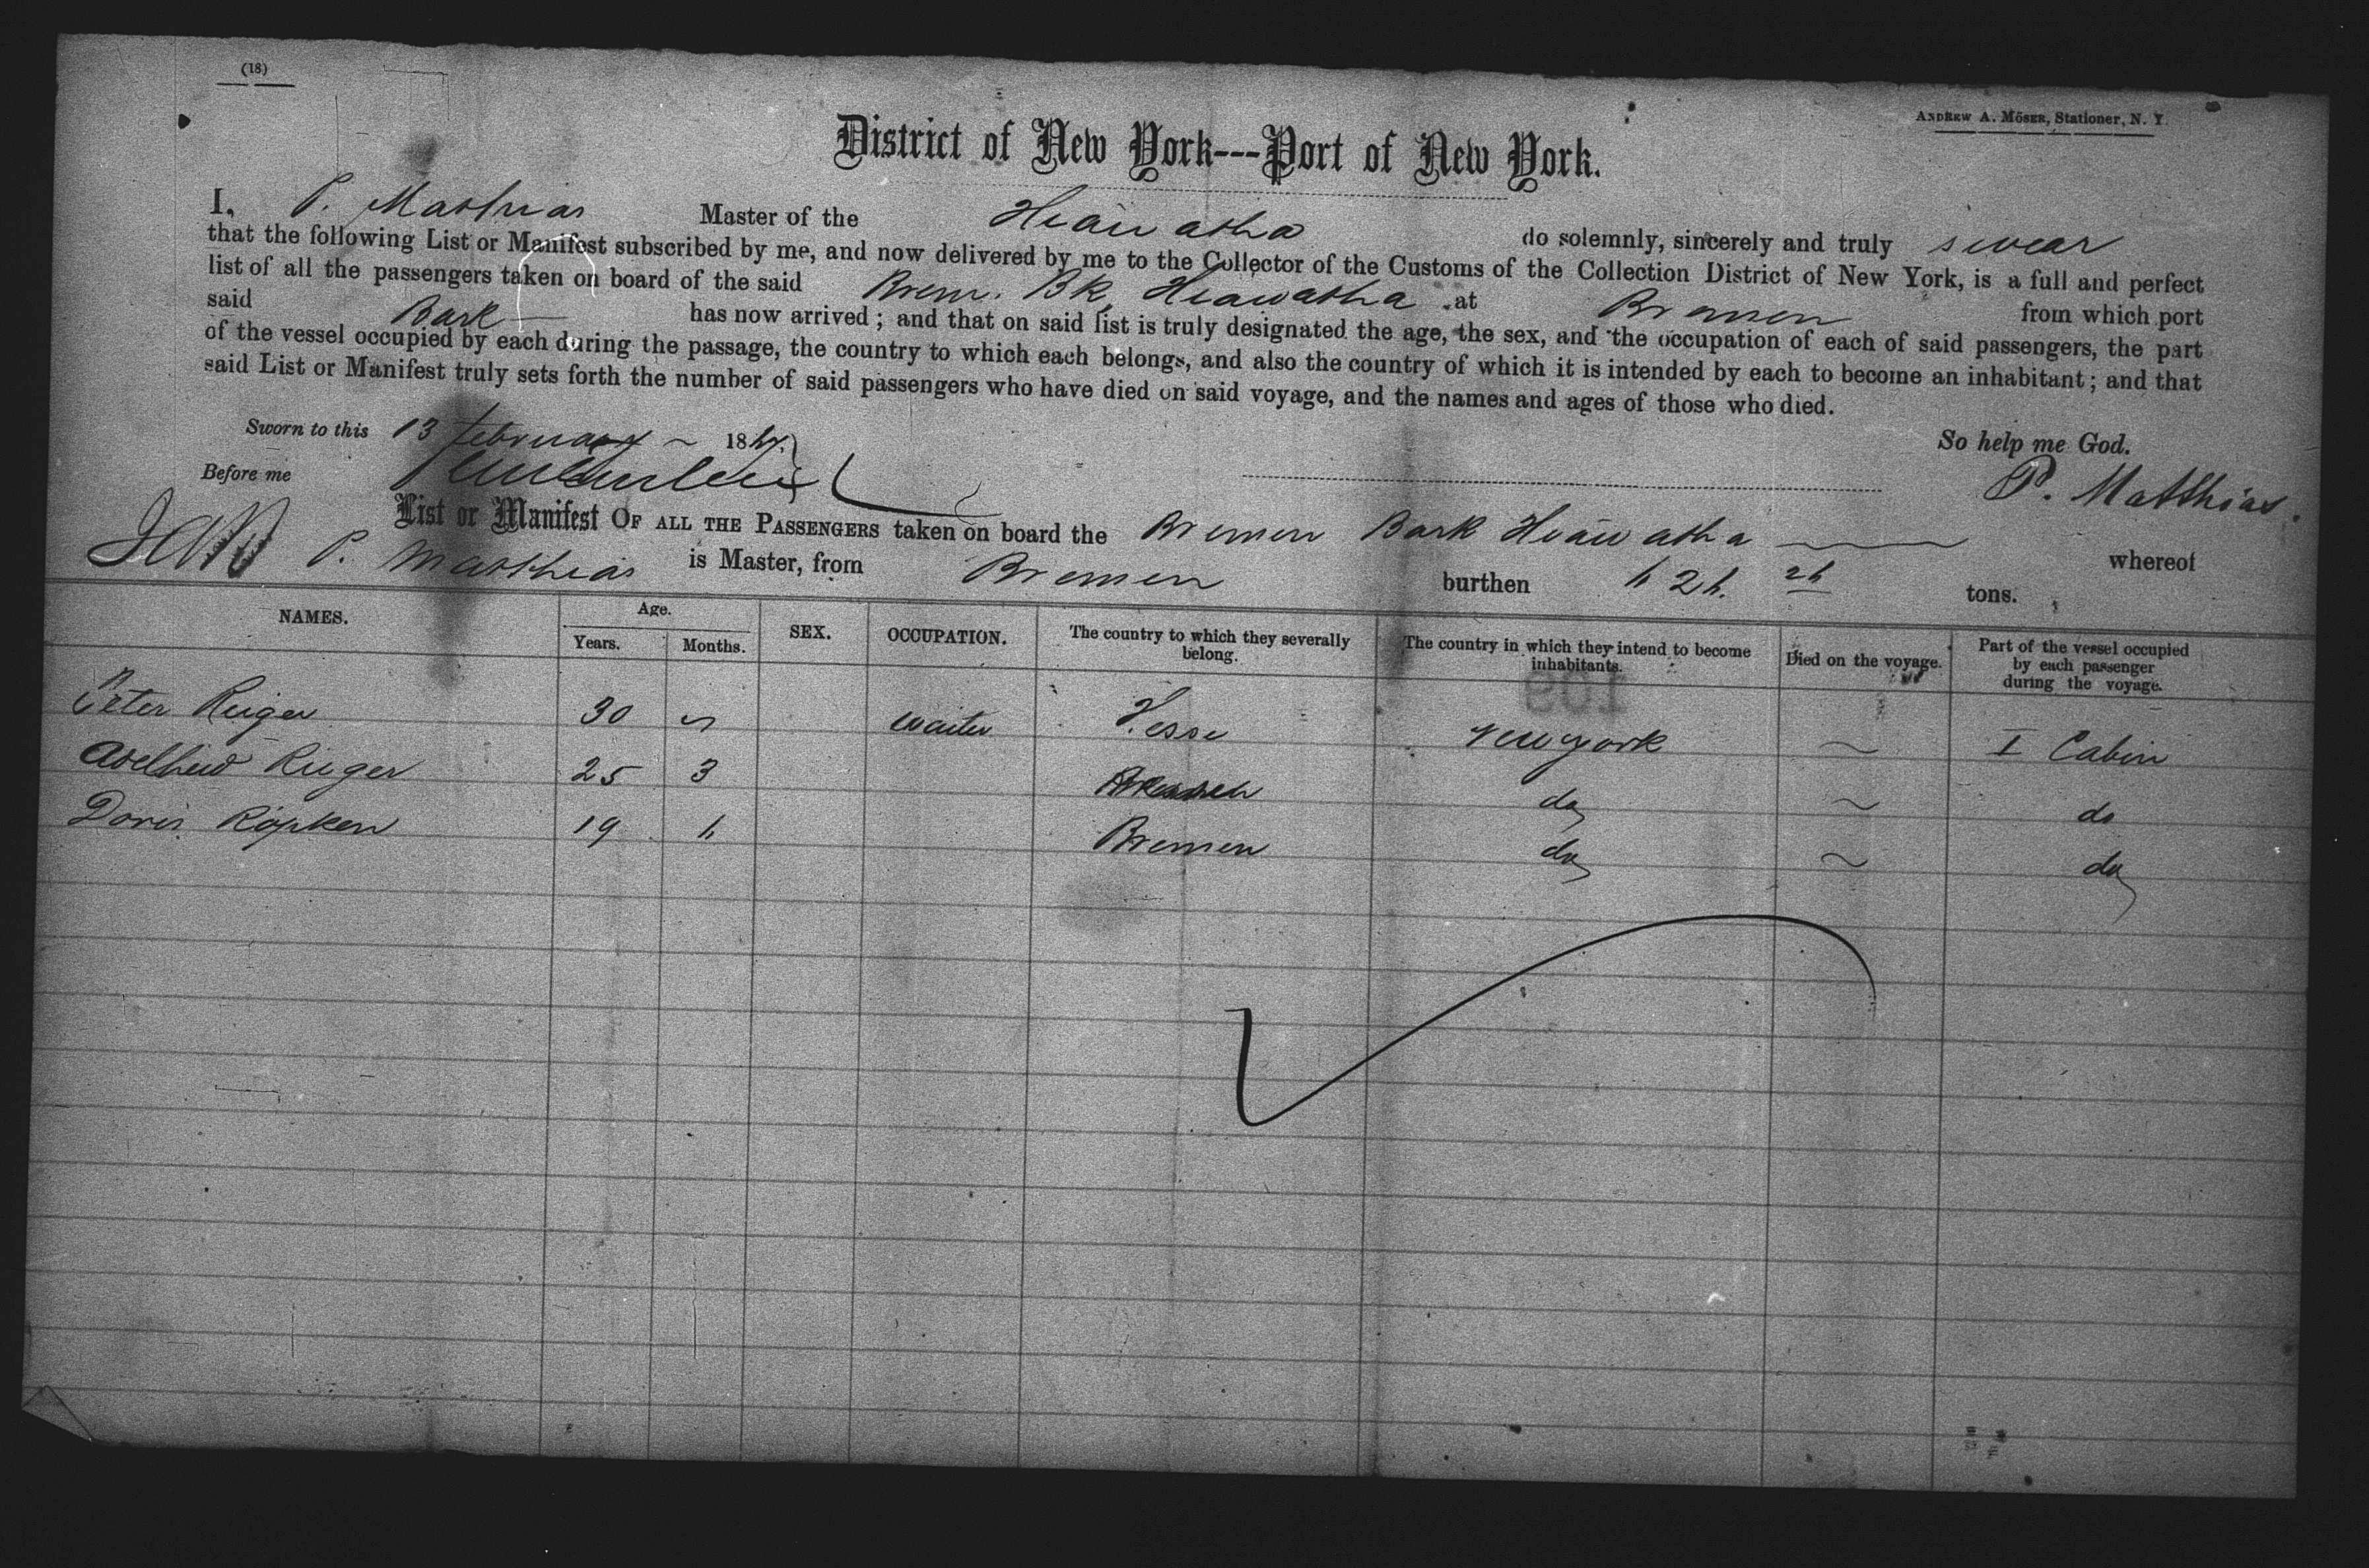 (18)
ANDREW A. MÖSER, Stationer, N. Y.
District of New York---Port of New York.
I, P. Matthias Master of the Heawatha do solemnly, sincerely and truly swear
that the following List or Manifest subscribed by me, and now delivered by me to the Collector of the Customs of the Collection District of New York, is a full and perfect
list of all the passengers taken on board of the said Brem. Bk Heawatha at Bremen from which port
said Bark has now arrived; and that on said list is truly designated the age, the sex, and the occupation of each of said passengers, the part
of the vessel occupied by each during the passage, the country to which each belongs, and also the country of which it is intended by each to become an inhabitant; and that
said List or Manifest truly sets forth the number of said passengers who have died on said voyage, and the names and ages of those who died.
Sworn to this 13 February 18 So help me God.
Before me P. Matthias.
List or Manifest OF ALL THE PASSENGERS taken on board the Bremen Bark Heawatha whereof
P. Matthias is Master, from Bremen burthen tons.
NAMES. Age. Years. Months. SEX. OCCUPATION. The country to which they severally belong. The country in which they intend to become inhabitants. Died on the voyage. Part of the vessel occupied by each passenger during the voyage.
Peter Rieger 30 waiter Hesse New york I Cabin
Adelheid Rieger 25 3 do do
Doris Röpken 19 Bremen do do